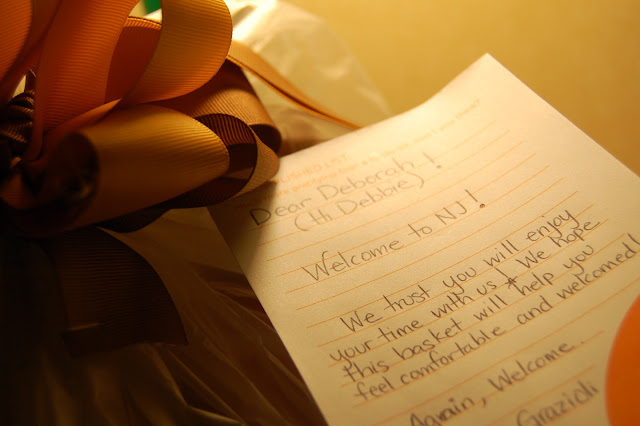 SHED LIST
Dear Deborah
(th Debbie)!
Welcome to NJ!
We trust you will enjoy
your time with us! We hope
this basket will help you
feel comfortable and welcomed
Again, Welcome.
Grazioli